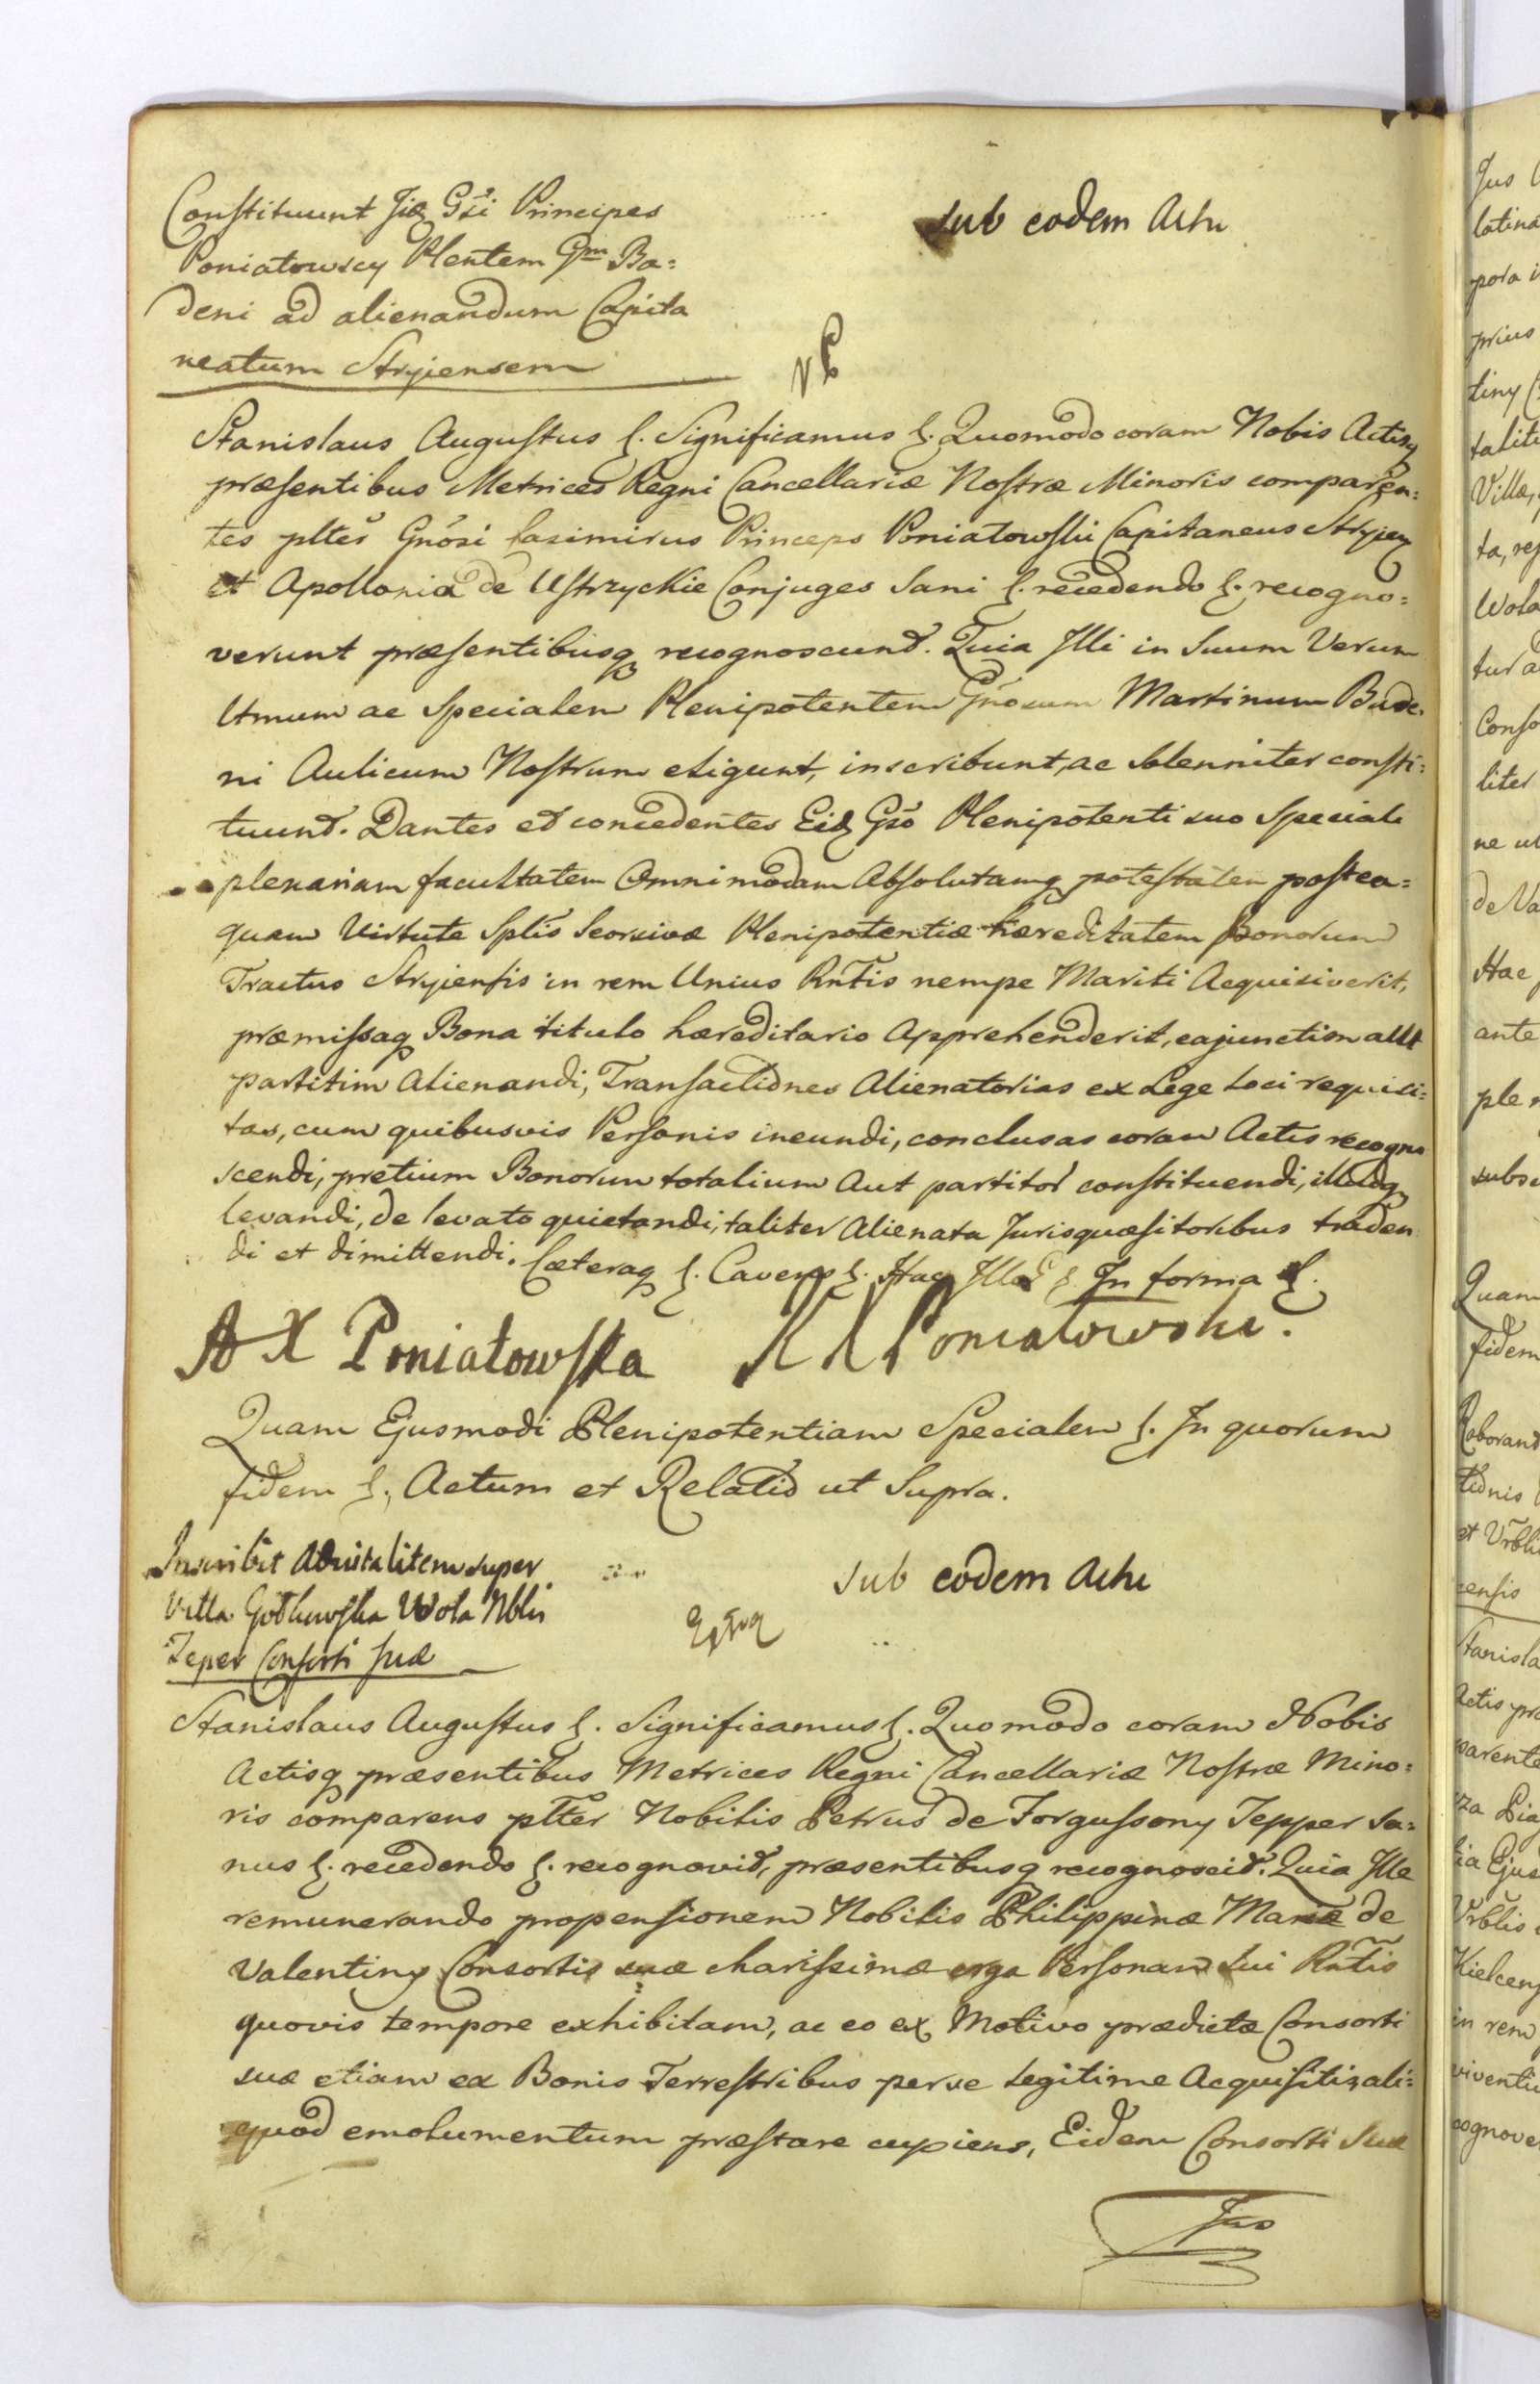 Constituunt Jlæ Gsi Principes
Poniatowscy Plentem Gm Ba=
deni ad alienandum Capita
neatum Stryiensem
sub eodem Actu
Stanislaus Augustus §. Significamus §. Quomodo coram Nobis Actisq
præsentibus Metrices Regni Cancellariæ Nostræ Minoris comparen=
tes plter Gnosi Casimirus Princeps Poniatowski Capitaneus Stryien
et Apollonia de Ustrzyckie Conjuges Sani §. recedendo §. recogno=
verunt præsentibusq recognoscunt. Quia Illi in Suum Verum
Utmum ac Specialem Plenipotentem Gnosum Martinum Bade=
ni Aulicum Nostrum eligunt, inscribunt, ac Solenniter consti=
tuunt. Dantes et concedentes Eid Gso Plenipotenti suo Speciali
plenariam facultatem Omnimodam Absolutamq potestatem postea=
quam Virtute Splis Seorsivæ Plenipotentiæ hæreditatem Bonorum
Tractus Stryiensis in rem Unius Rntis nempe Mariti Acquisiverit,
præmissaq Bona titulo hæreditario Apprehenderit, ea junctim allt
partitim Alienandi, Transactiones Alienatorias ex Lege Loci requisi=
tas, cum quibusvis Personis ineundi, conclusas coram Actis recogno
scendi, pretium Bonorum totalium Aut partitor constituendi, illudq
levandi, de levato quietandi, taliter Alienata Jurisquæsitoribus traden
di et dimittendi. Cæteraq §. Cavens §. Hac Illa §. In forma §.
A X Poniatowska K X Poniatowski.
Quam Ejusmodi Plenipotentiam Specialem §. In quorum
fidem §. Actum et Relatio ut Supra.
Inscribit Advitalitem super
Villa Gotkowska Wola Nblis
Teper Consorti suæ
sub eodem Actu
Stanislaus Augustus §. Significamus §. Quomodo coram Nobis
Actisq præsentibus Metrices Regni Cancellariæ Nostræ Mino=
ris comparens plter Nobilis Petrus de Forgussony Tepper Sa=
nus §. recedendo §. recognovit, præsentibusq recognoscit. Quia Ille
remunerando propensionem Nobilis Philippinæ Mariæ de
Valentiny Consortis suæ charissimæ erga Personam Sui Rntis
quovis tempore exhibitam, ac eo ex Motivo prædictæ Consorti
suæ etiam ex Bonis Terrestribus per se Legitime Acquisitis, ali=
quod emolumentum præstare cupiens, Eidem Consorti Suæ
Jus